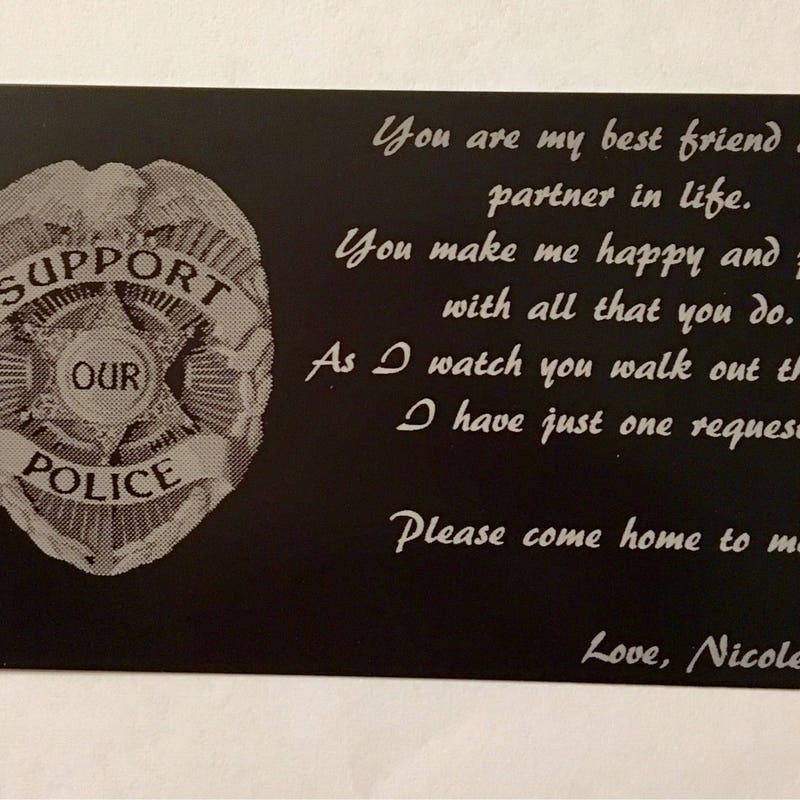 SUPPORT
OUR
POLICE
You are my best friend
partner in life.
You make me happy and
with all that you do.
As I watch you walk out
I have just one
Please come home to
Love, Nicole